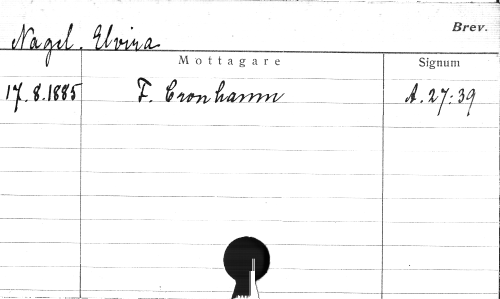 Brev.
Nagel. Elvira
Mottagare Signum
17.8.1885 F. Cronhamn A. 27:39